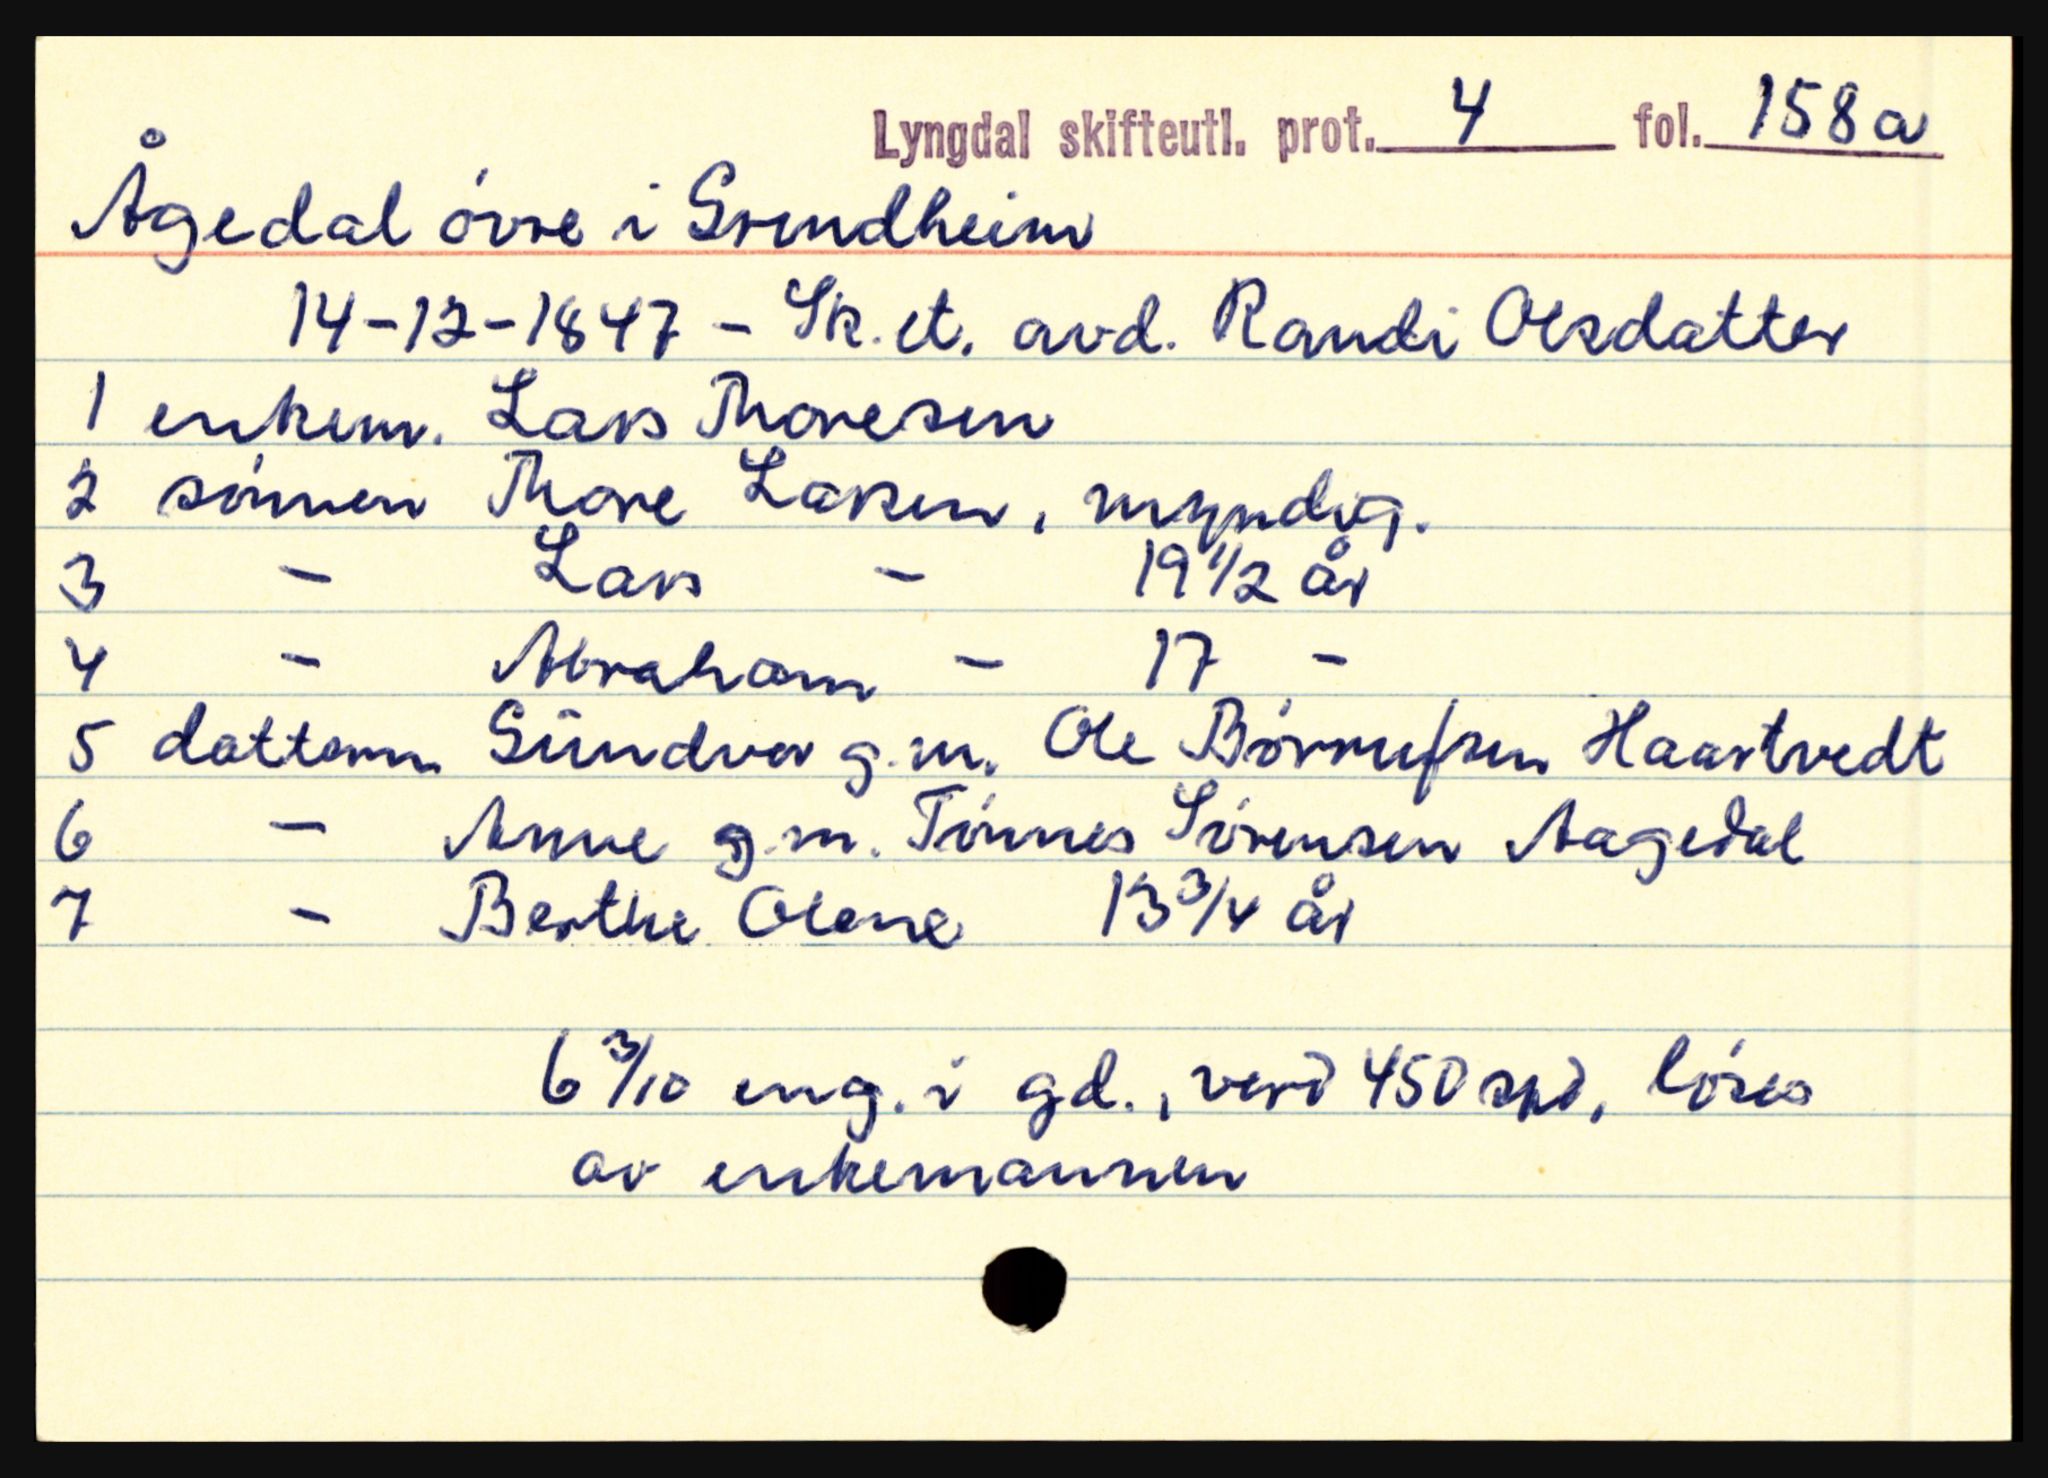 Lyngdal skifteutl. prot. 4 fol. 158a
Ågedal övre i Grindheim
14-12-1847 - Sk. et. avd. Randi Olsdatter
1 enkem. Lars Thoresen
2 sönnen Thore Larsen, myndig.
3 - Lars - 19 1/2 år
4 - Abraham - 17 -
5 datteren Gundver g.m. Ole Börrufsen Haartvedt
6 - Anne g.m. Tönnes Sörensen Aagedal
7 - Berthe Olene 13 3/4 år
6 3/10 eng. i gd., verd 450 spd, löses
av enkemannen